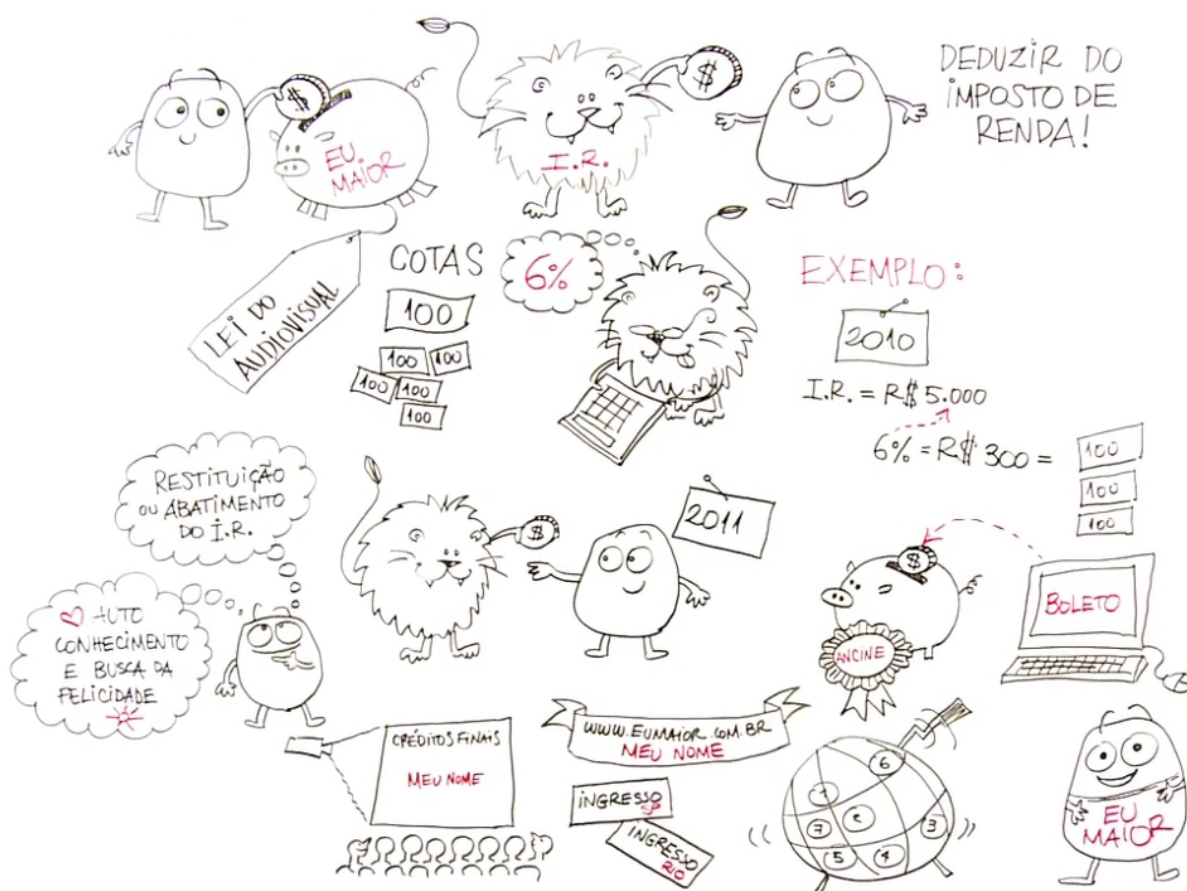 $
EU
MAIOR
I.R.
$
DEDUZIR DO
IMPOSTO DE
RENDA!
LEI DO
AUDIOVISUAL
COTAS
100
100
100
100
100
100
6%
EXEMPLO:
2010
I.R. = R$ 5.000
6% = R$ 300 =
100
100
100
RESTITUIÇÃO
OU ABATIMENTO
DO I.R.
AUTO
CONHECIMENTO
E BUSCA DA
FELICIDADE
$
2011
$
ANCINE
BOLETO
CRÉDITOS FINAIS
MEU NOME
WWW.EUMAIOR.COM.BR
MEU NOME
INGRESSO
SP
INGRESSO
RIO
6
3
5
EU
MAIOR